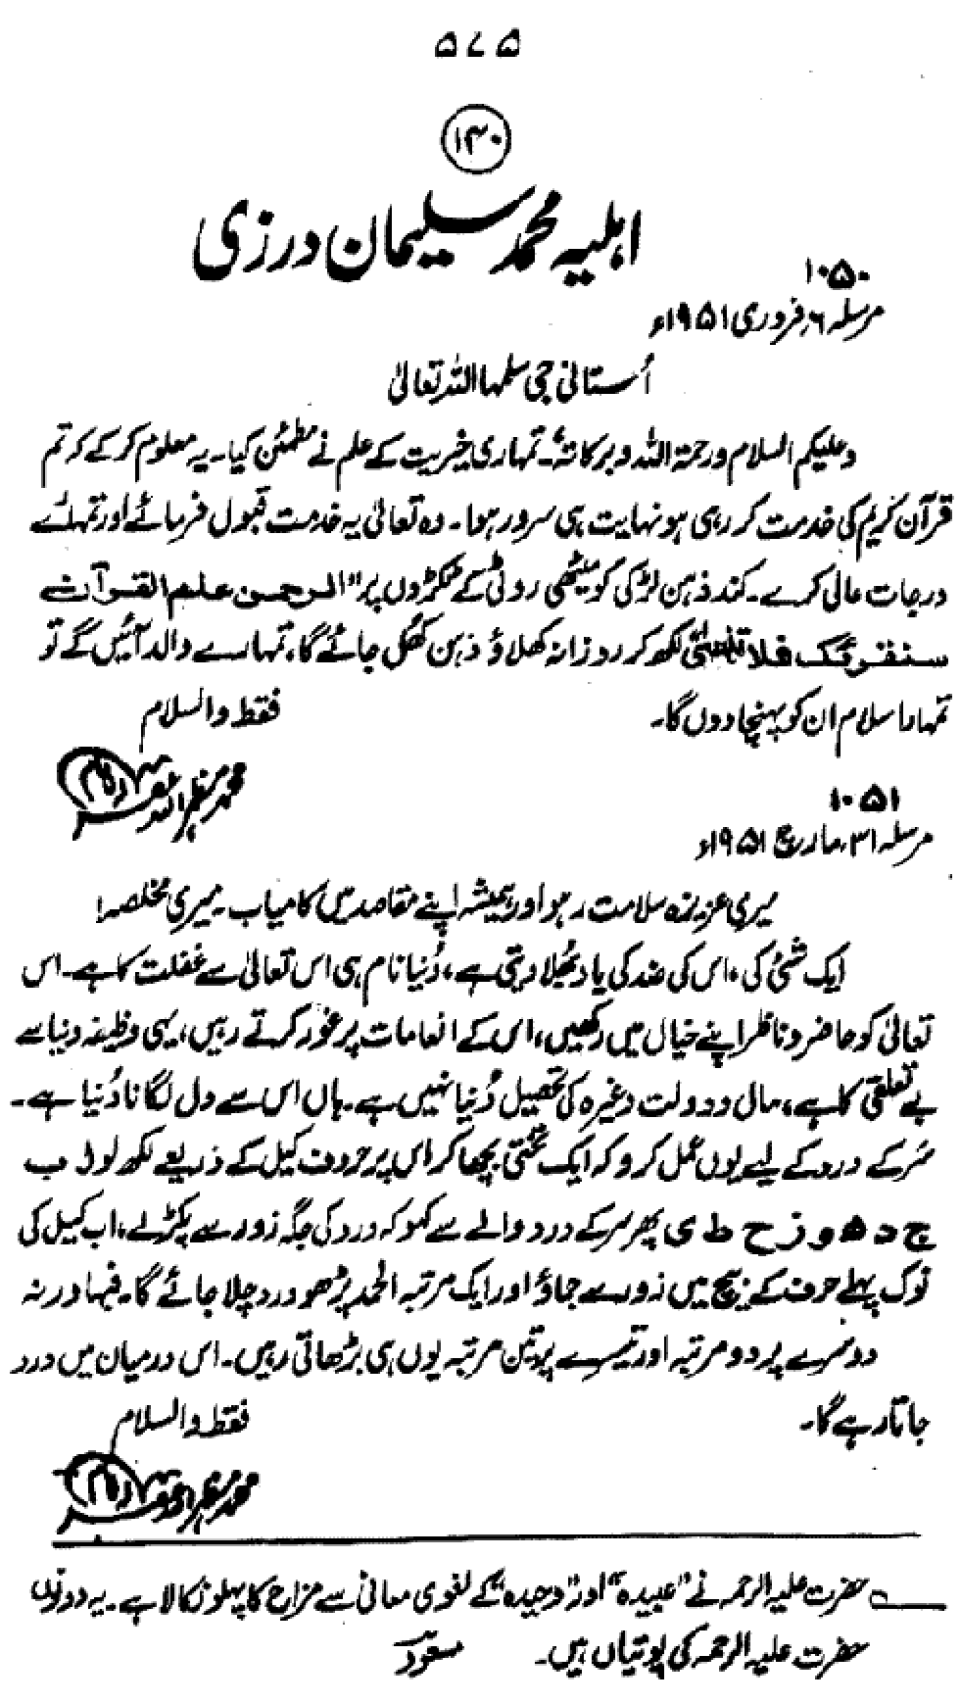 ۵۷۵
۱۳۰
اہلیہ محمد سلیمان درزی
۱۰۵۰
مرسلہ ۶؍فروری ۱۹۵۱ء
اُستانی جی سلمہا اللہ تعالیٰ
وعلیکم السلام ورحمۃ اللہ وبرکاتہٗ۔ تمہاری خیریت کے علم نے مطمئن کیا۔ یہ معلوم کرکے کہ تم
قرآن کریم کی خدمت کر رہی ہو نہایت ہی سرور ہوا۔ وہ تعالیٰ یہ خدمت قبول فرمائے اور تمہارے
درجات عالی کرے۔ کند ذہن لڑکی کو میٹھی روٹی کے ٹکڑوں پر "الرحمن علم القرآن ے
سنقرئک فلا تنسیٰ لکھ کر روزانہ کھلاؤ ذہن کھُل جائے گا، تمہارے والد آئیں گے تو
تمہارا سلام ان کو پہنچا دوں گا۔ فقط والسلام
محمد مظہر اللہ غفرلہ
۱۰۵۱
مرسلہ ۳۱؍مارچ ۱۹۵۱ء
میری عزیزہ سلامت رہو اور ہمیشہ اپنے مقاصد میں کامیاب۔ میری مخلصہ!
ایک شئ کی، اس کی ضد کی یاد بھُلا دیتی ہے، دُنیا نام ہی اس تعالیٰ سے غفلت کا ہے۔ اس
تعالیٰ کو حاضر و ناظر اپنے خیال میں رکھیں، اس کے انعامات پر غور کرتے رہیں، یہی وظیفہ دنیا سے
بے تعلقی کا ہے، مال و دولت وغیرہ کی تحصیل دُنیا نہیں ہے۔ ہاں اس سے دل لگانا دُنیا ہے۔
سَر کے درد کے لیے یوں عمل کرو کہ ایک تختی بچھا کر اس پر حروف کیل کے ذریعے لکھ لو ا ب
ج د ھ و ز ح ط ی پھر سر کے درد والے سے کہو کہ درد کی جگہ زور سے پکڑ لے، اب کیل کی
نوک پہلے حرف کے بیچ میں زور سے جماؤ اور ایک مرتبہ الحمد پڑھو درد چلا جائے گا۔ فبہا ورنہ
دوسرے پر دو مرتبہ اور تیسرے پر تین مرتبہ یوں ہی بڑھاتی رہیں۔ اس درمیان میں درد
جاتا رہے گا۔ فقط والسلام
محمد مظہر اللہ غفرلہ
حضرت علیہ الرحمہ نے "عبیدہ" اور "وحیدہ" کے لغوی معانی سے مزاح کا پہلو نکالا ہے۔ یہ دونوں
حضرت علیہ الرحمہ کی پوتیاں ہیں۔ مسعود